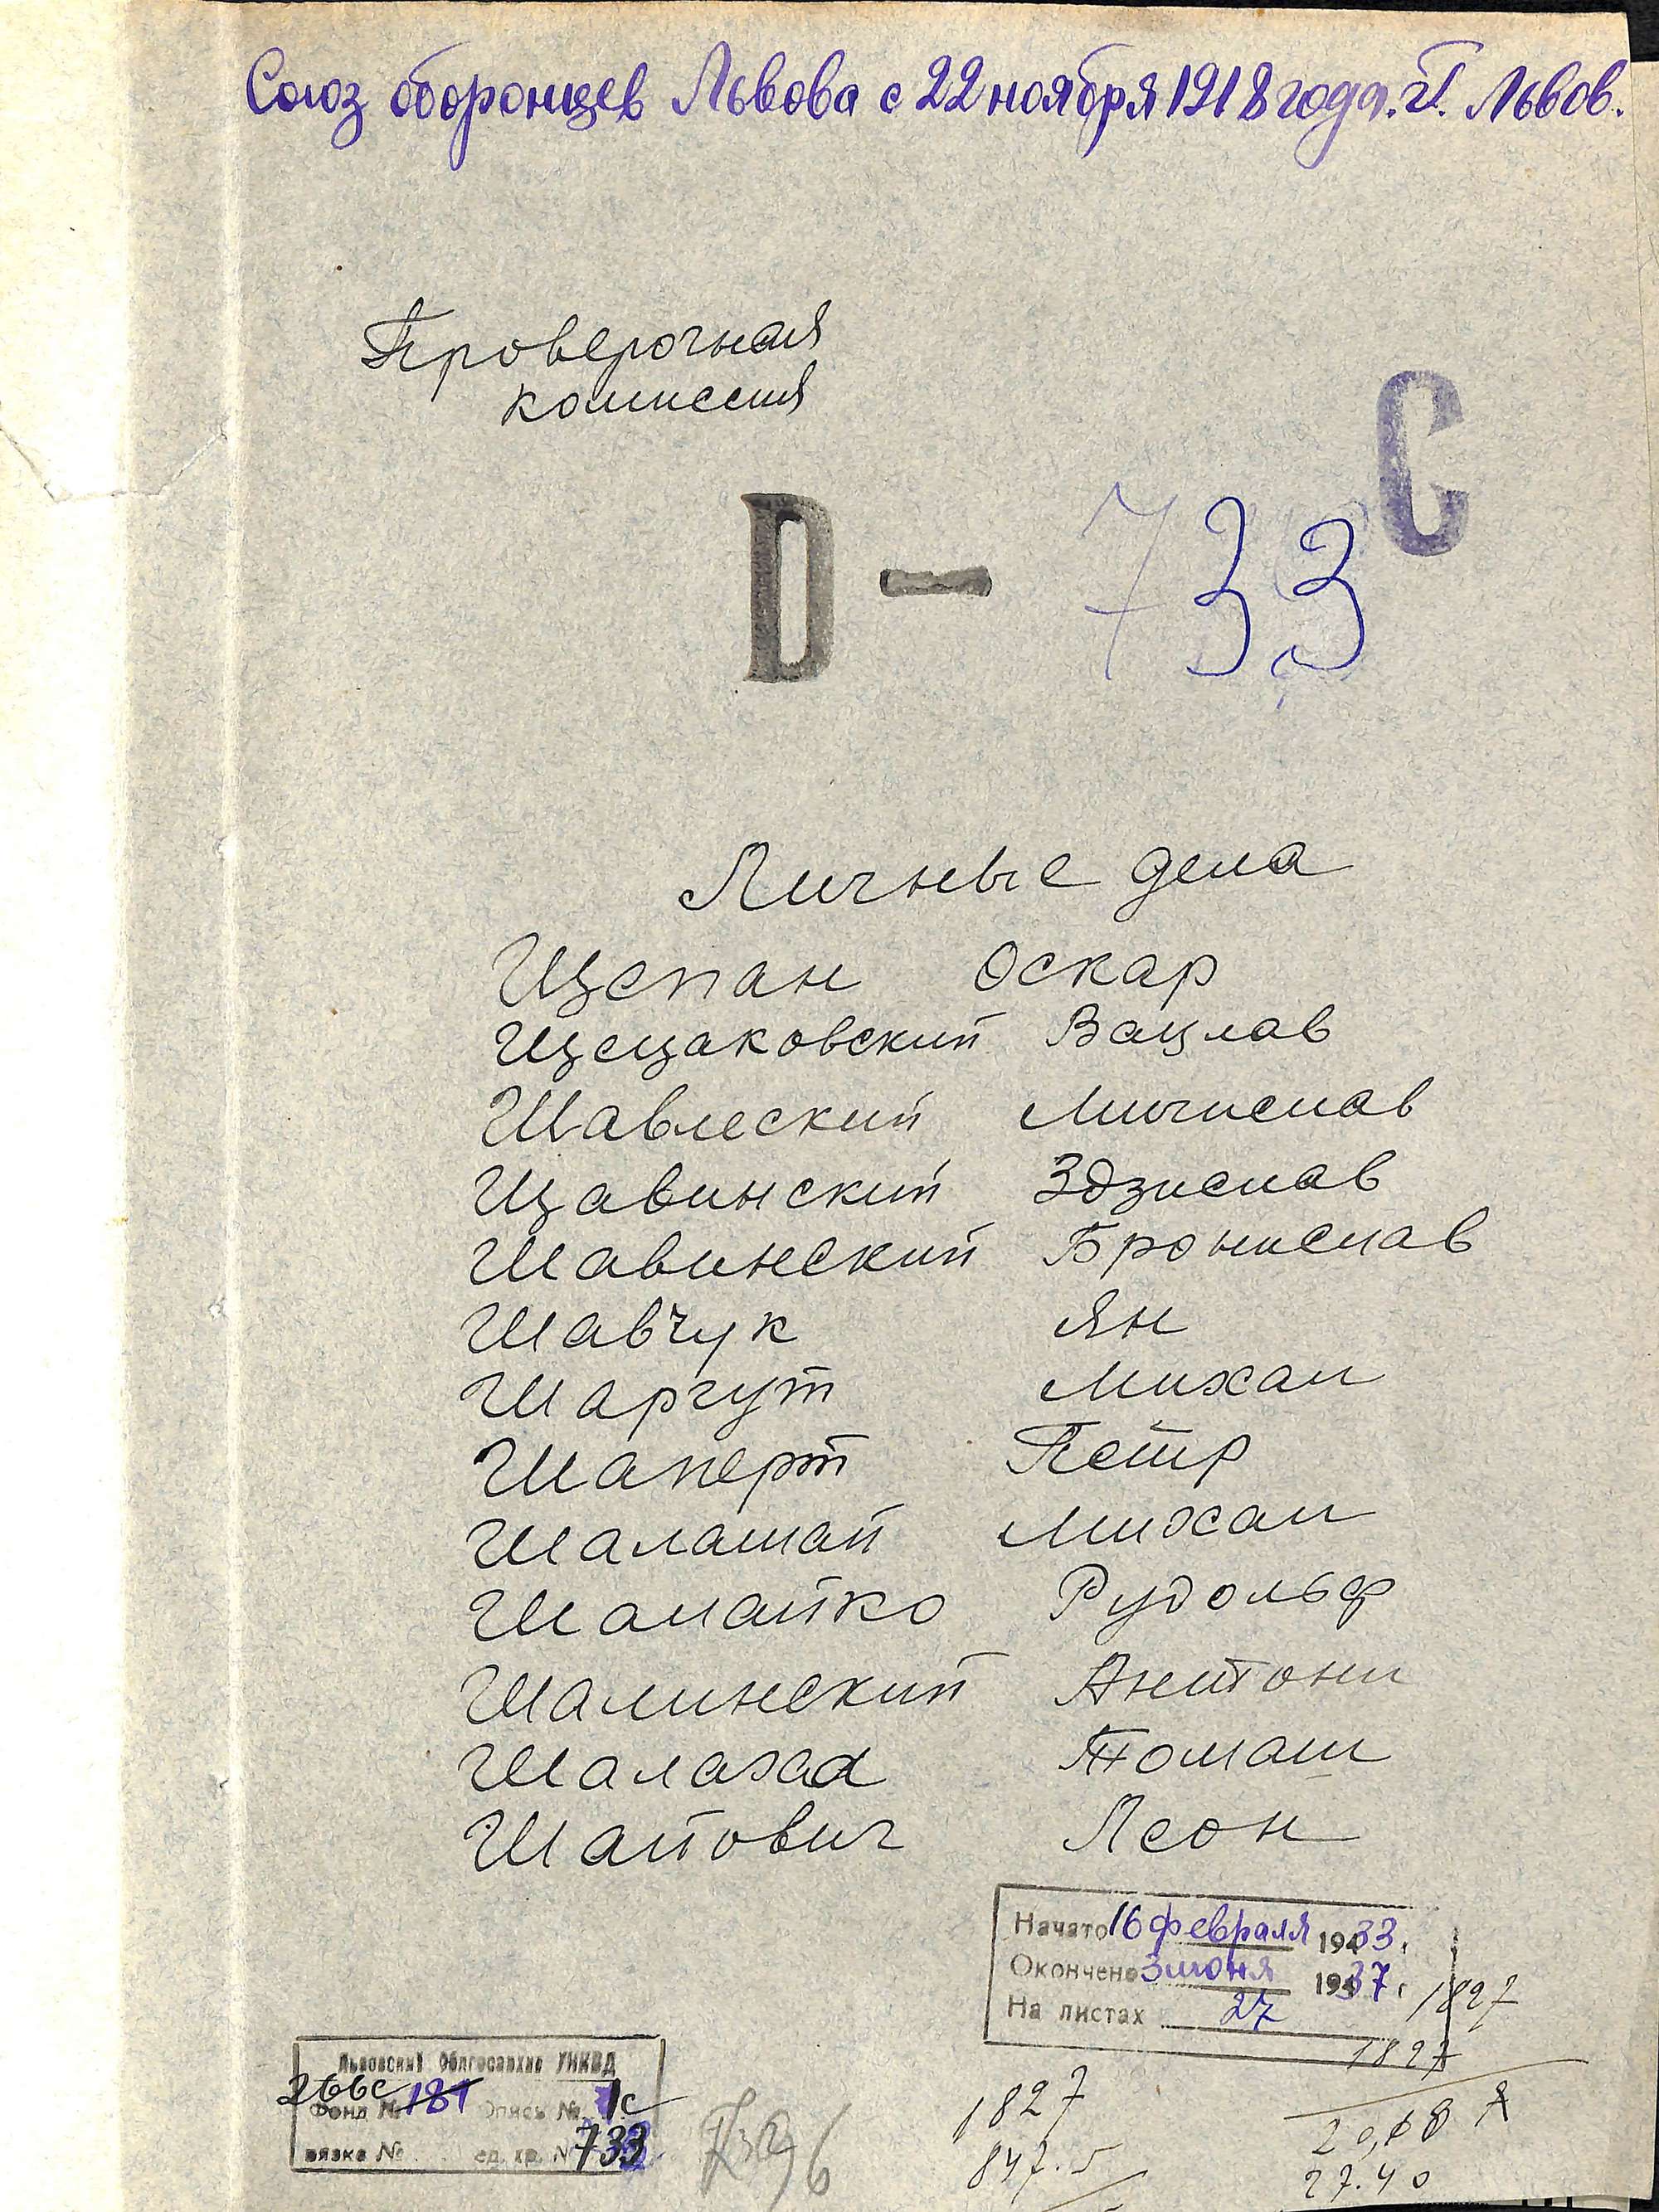 Союз оборонцев Львова с 22 ноября 1918 года. г. Львов.
Проверочная
комиссия
С
D – 733
Личные дела
Щепан Оскар
Щещаковский Вацлав
Шавлеский Мичислав
Щавинский Здзислав
Шавинский Бронислав
Шавчук Ян
Шаргут Михал
Шаперт Петр
Шалашай Михал
Шамайко Рудольф
Шалинский Антони
Шалаха Томаш
Шайович Леон
Начато 16 февраля 1933.
Окончено 3 июня 1937 г.
На листах 27
1827
1827
20,68
27.40
1827
847.5
Львовский Облгосархив УНКВД
266с
Фонд № 181 Опись № 1с
вязка № ед. хр. № 733